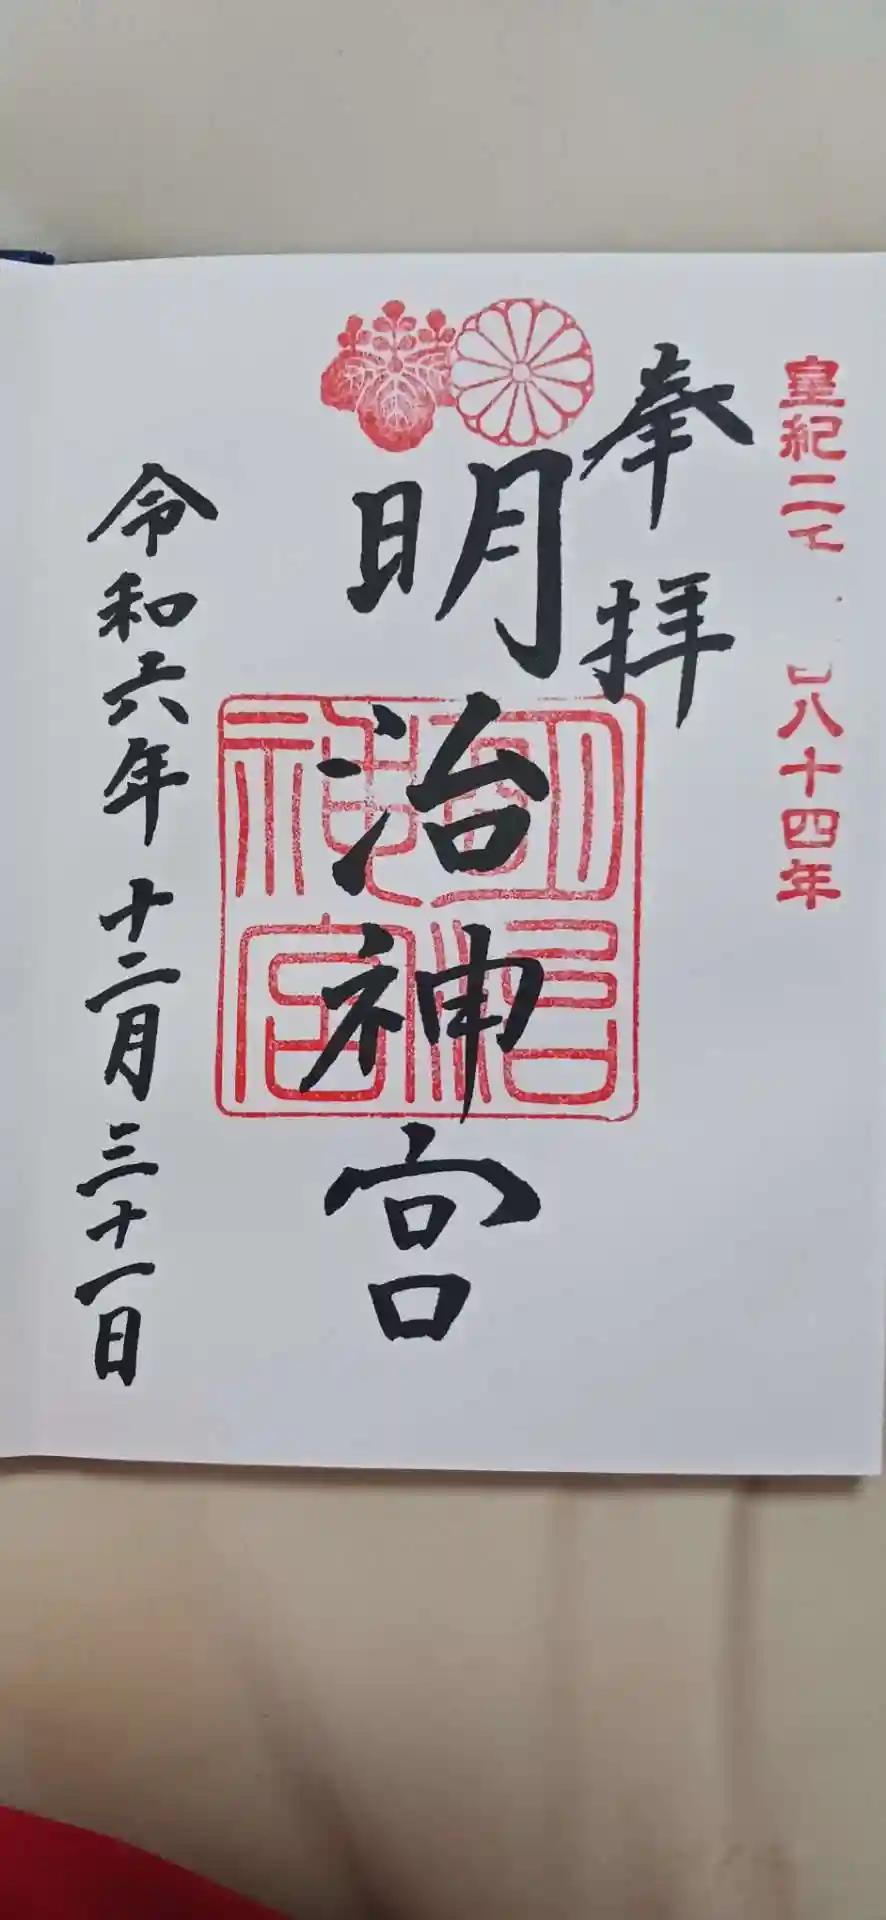 皇紀二 八十四年
奉拝
明治神宮
明治
神宮
令和六年十二月三十一日